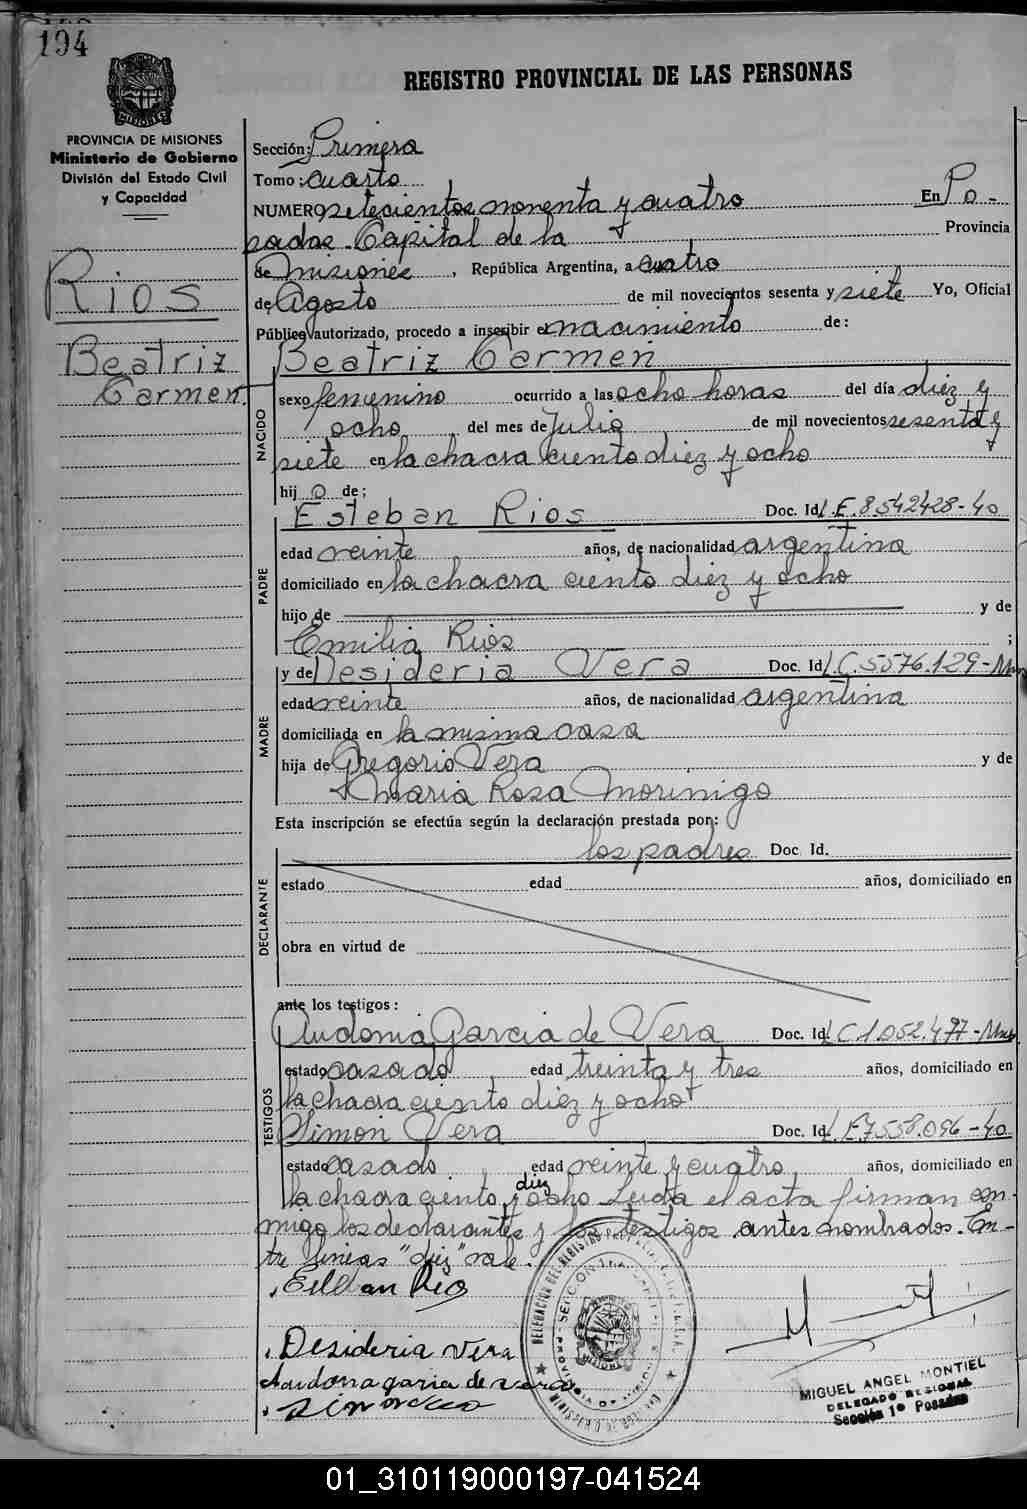 194
REGISTRO PROVINCIAL DE LAS PERSONAS
MISIONES
PROVINCIA DE MISIONES
Ministerio de Gobierno
División del Estado Civil
y Capacidad
Rios
Beatriz
Carmen
Sección: Primera
Tomo: cuarto
NUMERO setecientos noventa y cuatro En Po-
sadas Capital de la Provincia
de Misiones, República Argentina, a cuatro
de Agosto de mil novecientos sesenta y siete Yo, Oficial
Público autorizado, procedo a inscribir el nacimiento de:
Beatriz Carmen
NACIDO
sexo femenino ocurrido a las ocho horas del día diez y
ocho del mes de Julio de mil novecientos sesenta y
siete en la chacra ciento diez y ocho
hij o de;
PADRE
Esteban Rios Doc. Id. L.E. 8.542428-40
edad veinte años, de nacionalidad argentina
domiciliado en la chacra ciento diez y ocho
hijo de y de
Emilia Rios ;
MADRE
y de Desideria Vera Doc. Id. L.C. 5576.129-Mnes
edad veinte años, de nacionalidad argentina
domiciliada en la misma casa
hija de Gregorio Vera y de
Maria Rosa Morinigo
Esta inscripción se efectúa según la declaración prestada por:
los padres Doc. Id.
DECLARANTE
estado edad años, domiciliado en
obra en virtud de
ante los testigos:
TESTIGOS
Garcia de Vera Doc. Id. L C 1.052.477-Mnes
estado casado edad treinta y tres años, domiciliado en
la chacra ciento diez y ocho
Simon Vera Doc. Id. L.E. 7.558.096-40
estado casado edad veinte y cuatro años, domiciliado en
diez
la chacra ciento y ocho Leida el acta firman con-
migo los declarantes y los testigos antes nombrados. En-
tre lineas "diez" vale.
Esteban Rios
Desideria Vera
garcia de vera
MIGUEL ANGEL MONTIEL
DELEGADO REGIONAL
Sección 1º Posadas
01_310119000197-041524